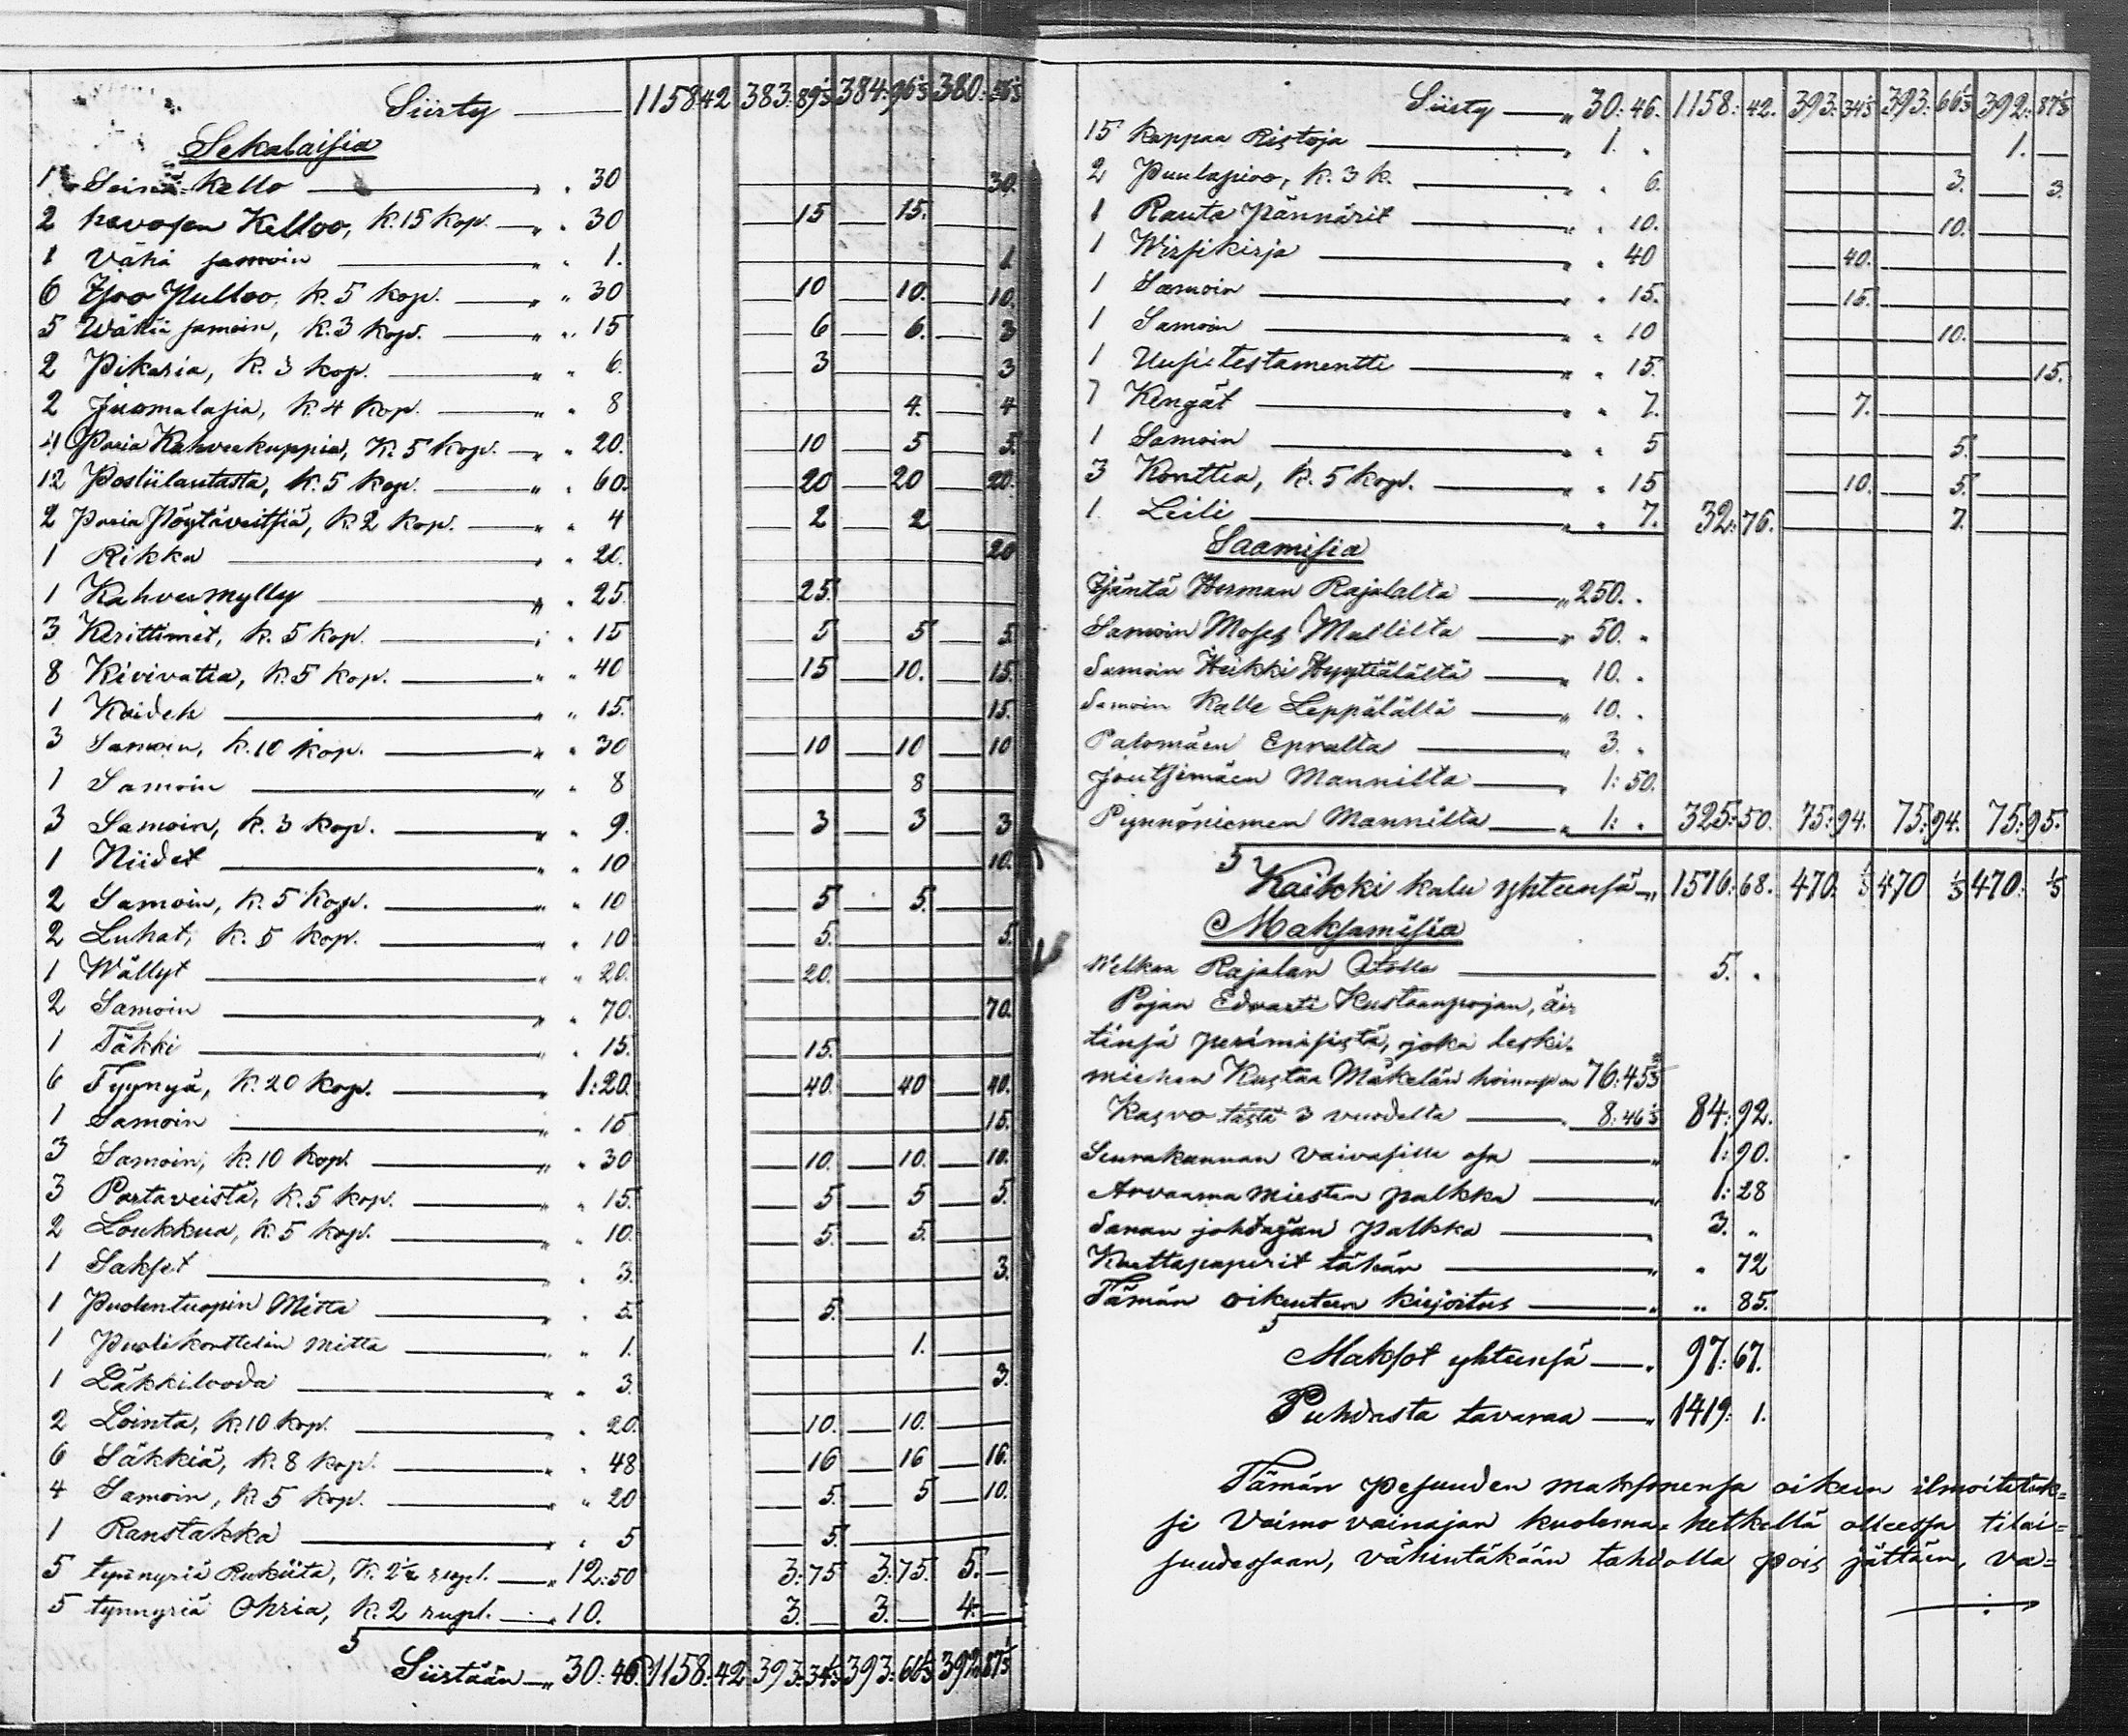 Siirty — 1158 42 383: 89⅓ 384: 96⅓ 380: 56⅓
Sekalaisia
1 Seinä-Kello — „ „ 30 — 30.
2 hevosen Kelloo, k. 15 kop. — „ „ 30 — 15 — 15.
1 Vähä samoin — „ „ 1. — 1
6 Isoo Pulloo, k. 5 kop. — „ „ 30 — 10 — 10. — 10.
5 Wähä samoin, k. 3 kop. — „ „ 15 — 6 — 6. — 3
2 Pikaria, k. 3 kop. — „ „ 6. — 3 — 3
2 Juomalasia, k. 4 kop. — „ „ 8 — 4. — 4
4 Paria Kahveekuppia, k. 5 kop. — „ „ 20. — 10 — 5 — 5.
12 Posliilautasta, k. 5 kop. — „ „ 60. — 20 — 20 — 20.
2 Paria Pöytäveitsiä, k. 2 kop. — „ „ 4 — 2 — 2
1 Rikka — „ „ 20. — 20
1 Kahveemylly — „ „ 25. — 25.
3 Kerittimet, k. 5 kop. — „ „ 15 — 5 — 5 — 5.
8 Kivivatia, k. 5 kop. — „ „ 40 — 15 — 10. — 15.
1 Kaideh — „ „ 15. — 15.
3 Samoin, k. 10 kop. — „ „ 30 — 10 — 10 — 10
1 Samoin — „ „ 8 — 8
3 Samoin, k. 3 kop. — „ „ 9. — 3 — 3 — 3
1 Niidet — „ „ 10 — 10.
2 Samoin, k. 5 kop. — „ „ 10 — 5 — 5.
2 Luhat, k. 5 kop. — „ „ 10 — 5. — 5.
1 Wällyt — „ „ 20. — 20.
2 Samoin — „ „ 70. — 70.
1 Täkki — „ „ 15. — 15.
6 Tyynyä, k. 20 kop. — 1:20. — 40. — 40 — 40.
1 Samoin — „ „ 15 — 15.
3 Samoin, k. 10 kop. — „ „ 30 — 10. — 10. — 10.
3 Partaveistä, k. 5 kop. — „ „ 15. — 5 — 5 — 5.
2 Loukkua, k. 5 kop. — „ „ 10. — 5. — 5.
1 Sakset — „ „ 3. — 3.
1 Puolentuopin Mitta — „ „ 5. — 5.
1 Puolikorttelin mitta — „ „ 1. — 1.
1 Läkkilooda — „ „ 3. — 3.
2 Lointa, k. 10 kop. — „ „ 20. — 10. — 10.
6 Säkkiä, k. 8 kop. — „ „ 48 — 16 — 16 — 16.
4 Samoin, k. 5 kop. — „ „ 20 — 5. — 5 — 10.
1 Ranstakka — „ „ 5 — 5.
5 tynnyriä Rukiita, k. 2½ rupl. — „ 12:50 3:75 3:75. 5. —
5 tynnyriä Ohria, k. 2 rupl. — „ 10. 3. — 3. — 4. —
Siirtään — „ 30:46. 1158:42 393:34⅓ 393:66⅓ 392:87⅓
Siirty — „ 30:46. 1158:42. 393:34⅓ 393:66⅓ 392:87⅓
15 kappaa Ristoja — „ 1. „ — 1. —
2 Puulapioo, k. 3 k. — „ „ 6. — 3. — 3.
1 Rauta Pännärit — „ „ 10. — 10.
1 Wirsikirja — „ „ 40 — 40.
1 Samoin — „ „ 15. — 15.
1 Samoin — „ „ 10 — 10.
1 Uusi testamentti — „ „ 15. — 15.
1 Kengät — „ „ 7. — 7.
1 Samoin — „ „ 5 — 5.
3 Konttia, k. 5 kop. — „ „ 15 — 10. — 5.
1 Leili — „ „ 7. 32:76. — 7.
Saamisia
Isäntä Herman Rajalalta — „ 250. „
Samoin Moses Mullilta — „ 50. „
Samoin Heikki Hyytiälältä — „ 10. „
Samoin Kalle Leppälältä — „ 10. „
Palomäen Epralta — „ 3. „
Joutsimäen Mannilta — „ 1:50.
Pynnöniemen Mannilta — „ 1: „ 325:50. 75:94. 75:94. 75:95.
Kaikki kalu yhteensä — „ 1516:68. 470. ⅓ 470 ⅓ 470: ⅓
Maksamisia
Welkaa Rajalan — 5. „
Pojan Edvarti Kustaanpojan, äi-
tinsä perimisistä, joka leski-
miehen Kustaa Mäkelän 76:45⅔
Kasvo tästä 3 vuodelta — 8:46⅓ 84:92.
Seurakunnan vaivasille osa — „ 1:90.
Arvaama miesten palkka — „ 1:28
Sanan johdajan Palkka — „ 3. „
Karttapaperit tähän — „ „ 72
Tämän oikeuteen kirjoitus — „ „ 85.
Maksot yhteensä — „ 97:67.
Puhdasta tavaraa — „ 1419: 1.
Tämän pesuuden maksonensa oikeen ilmoitetuk=
si Vaimo vainajan kuolema-hetkellä olleessa tilai=
suudessaan, vähintäkään tahdolla pois jättäin, va=